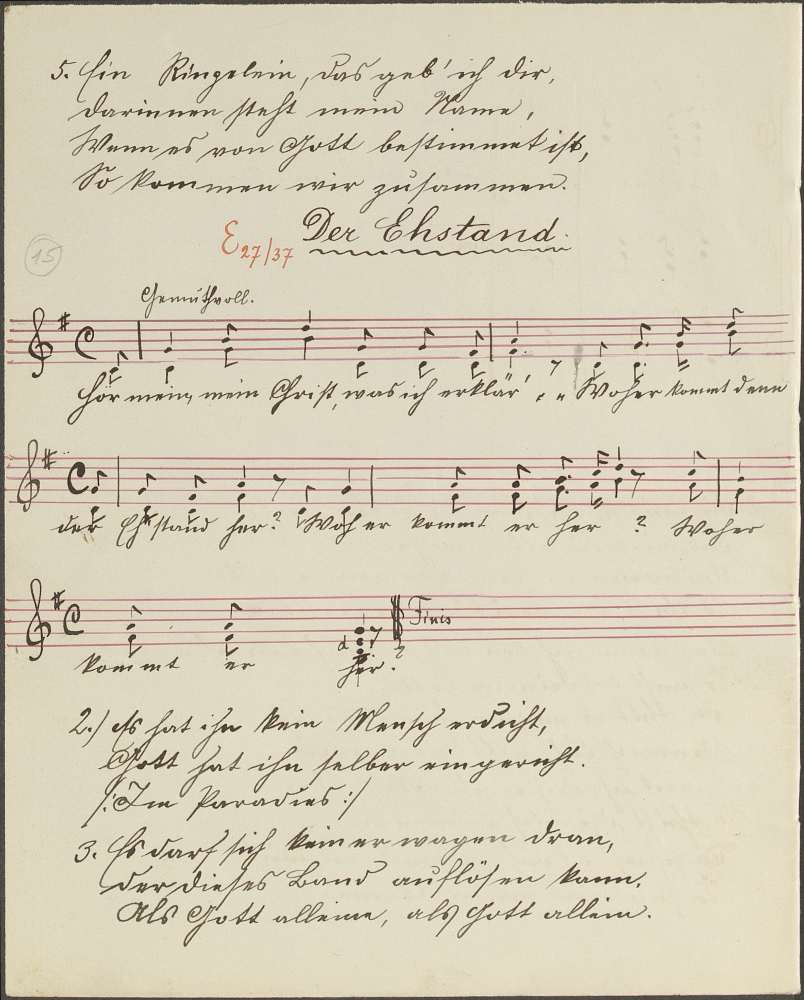 5. Ein Ringelein, das geb' ich dir,
darinnen steht mein Name,
Wenn es von Gott bestimmet ist,
So kommen wir zusammen.
E 27/37 Der Ehstand.
15
Gemüthvoll.
Hör mein, mein Christ, was ich erklär'. „ Woher kommt denn
der Ehstand her? Woher kommt er her? Woher
kommt er her.
d
Finis
2.) Es hat ihn kein Mensch erdicht,
Gott hat ihn selber eingericht.
/: Im Paradies :/
3. Es darf sich keiner wagen dran,
der dieses Band auflösen kann.
Als Gott alleine, als Gott allein.